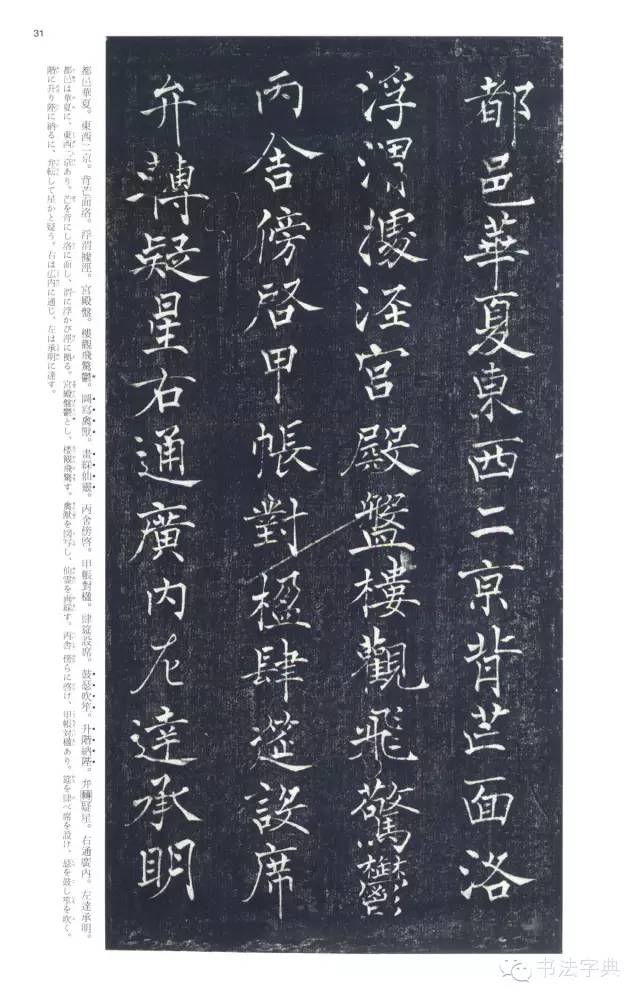 31
都邑華夏東西二京背芒面洛
浮渭據涇宮殿盤樓觀飛驚鬱
丙舍傍啓甲帳對楹肆筵設席
弁轉疑星右通廣內左達承明
都邑華夏。東西二京。背芒面洛。浮渭據涇。宮殿盤。樓觀飛驚鬱。圖寫禽獸。畫綵仙靈。丙舍傍啓。甲帳對楹。肆筵設席。鼓瑟吹笙。升階納陛。弁轉疑星。右通廣內。左達承明。
都邑は華夏に、東西二京あり。芒を背にし洛に面し、渭に浮かび涇に拠る。宮殿盤鬱とし、楼観飛驚す。禽獣を図写し、仙霊を画綵す。丙舎 傍らに啓け、甲帳対楹あり。筵を肆べ席を設け、瑟を鼓し笙を吹く。
階に升り陛に納るに、弁転して星かと疑う。右は広内に通じ、左は承明に達す。
书法字典